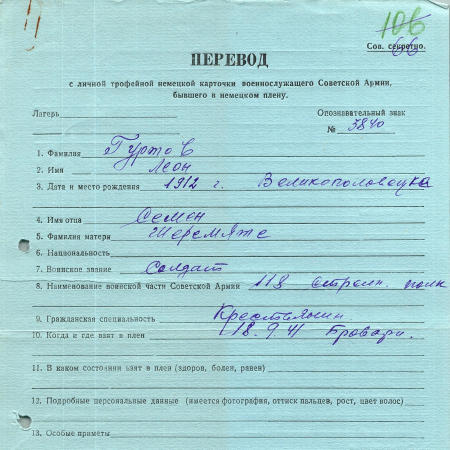 106
66
Сов. секретно.
ПЕРЕВОД
с личной трофейной немецкой карточки военнослужащего Советской Армии,
бывшего в немецком плену.
Лагерь Опознавательный знак
№ 3840
1. Фамилия Гуртов
2. Имя Леон
3. Дата и место рождения 1912 г. Великополовецка
4. Имя отца Семен
5. Фамилия матери Шеремяте
6. Национальность
7. Воинское звание Солдат
8. Наименование воинской части Советской Армии 118 стрелк. полк
9. Гражданская специальность Крестьянин.
10. Когда и где взят в плен 18.9.41 Бровари.
11. В каком состоянии взят в плен (здоров, болен, ранен)
12. Подробные персональные данные (имеется фотография, оттиск пальцев, рост, цвет волос)
13. Особые приметы